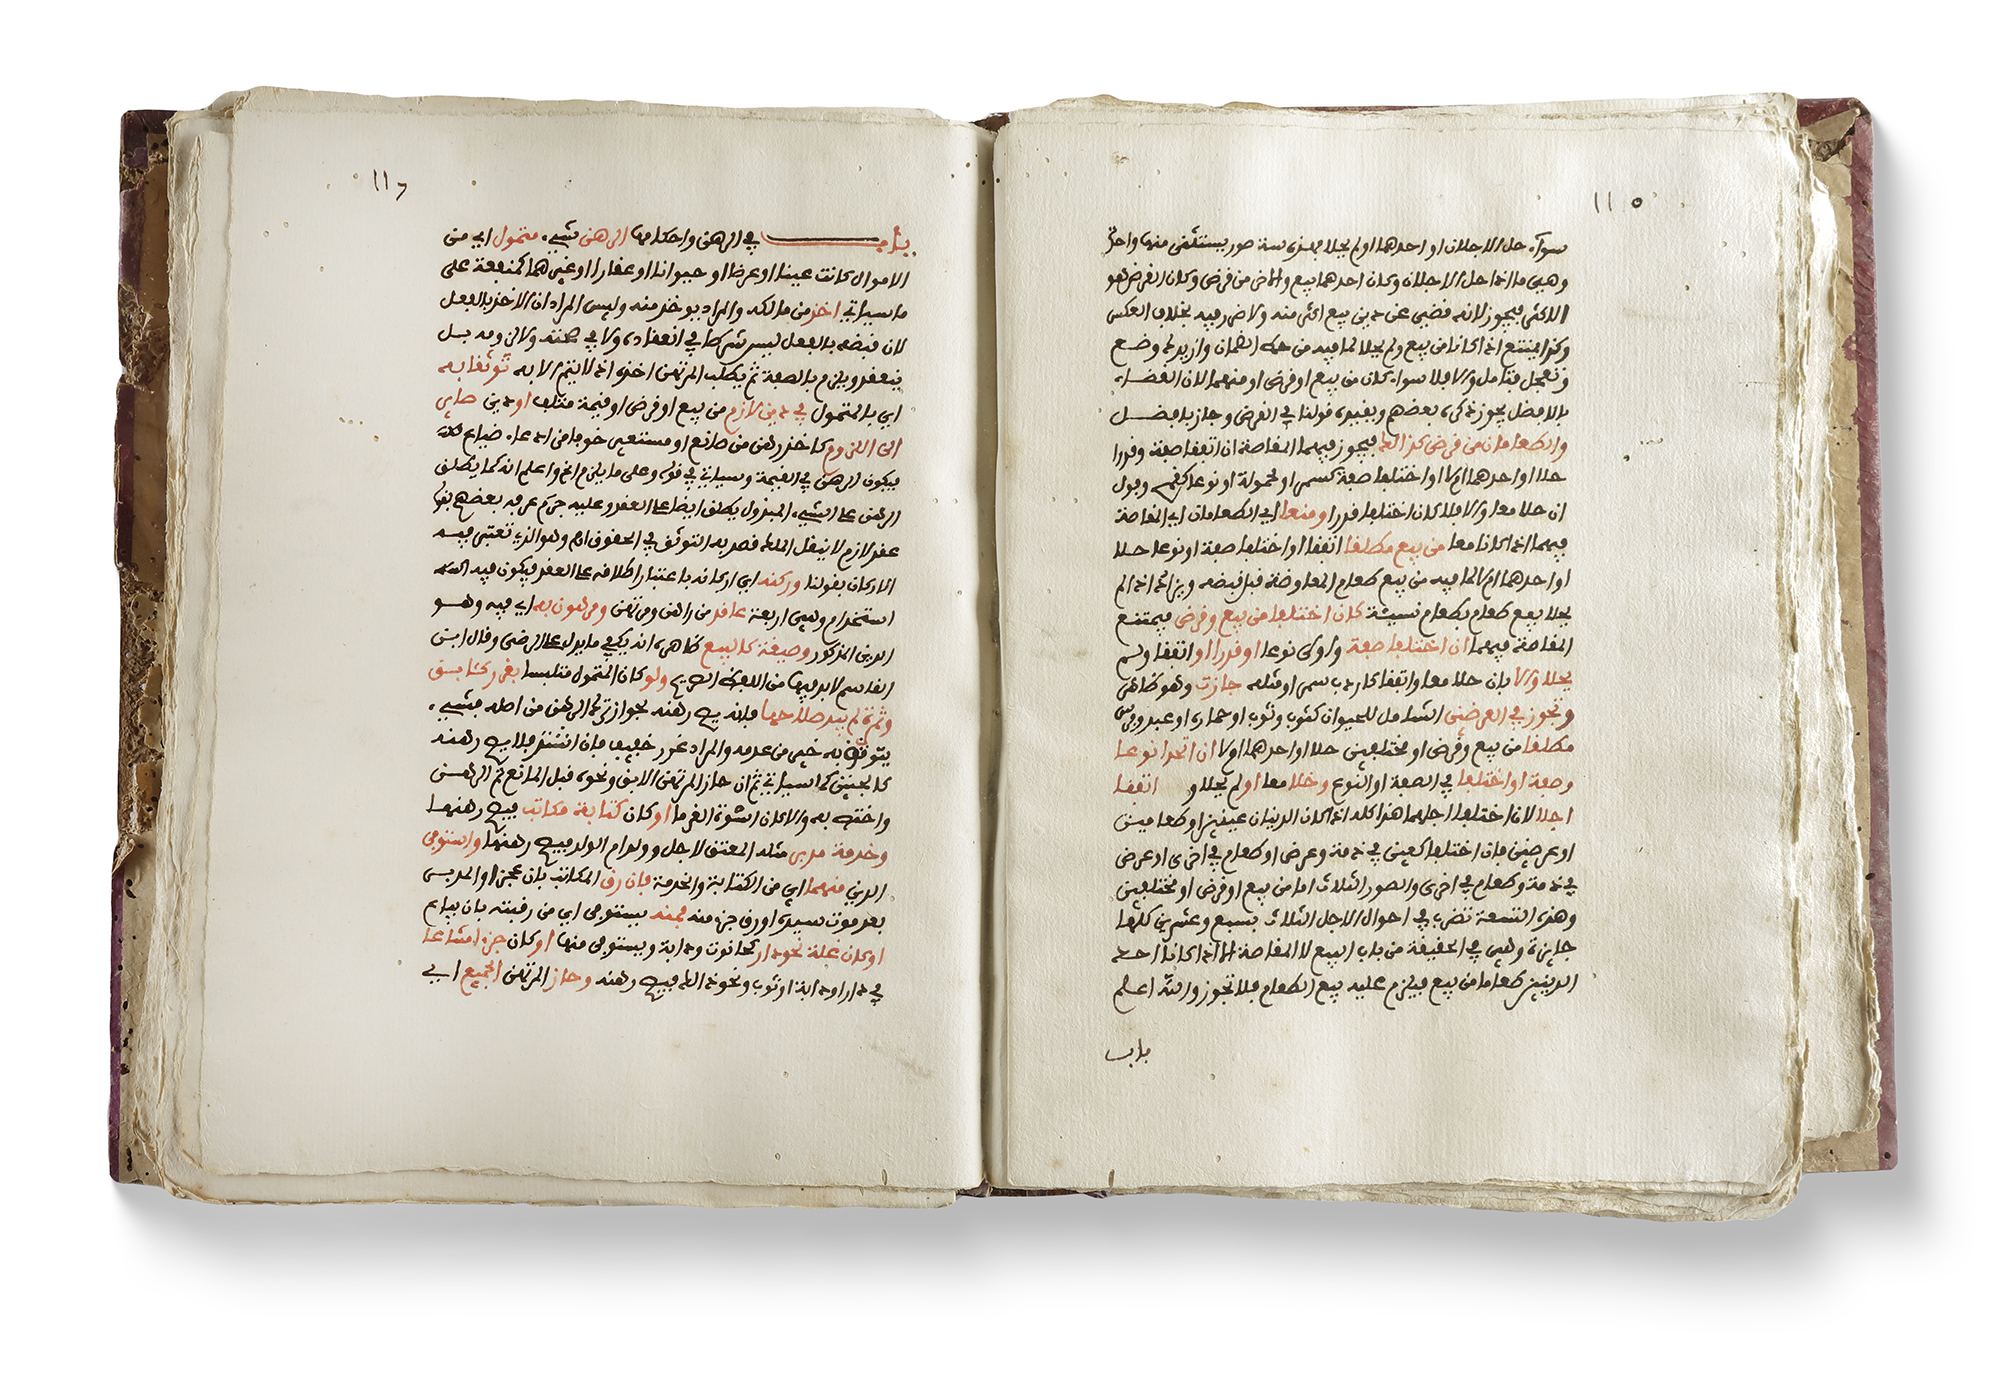 ١١٥
سواء حل الاجلان او احدهما او لم يحلا فهذه ستة صور يستثنى منها واحدة
وهي ما اذا حل الاجلان وكان احدهما من بيع والاخر من قرض وكان القرض هو
الاكثر فيجوز لانه قضى عن دين بيع اكثر منه ولا ضرر فيه بخلاف العكس
وكذا يمتنع اذا كانا من بيع ولم يحلا لما فيه من حط الضمان وازيدك وضع
وتعجل فتامل والا فلا سواء كان من بيع او قرض او منهما لان القضاء
بالافضل يجوز ذكره بعضهم ويفيده قولنا في القرض وجاز بافضل
والطعامان من قرض كذلك فيجوز فيهما المقاصة ان اتفقا صفة وقدرا
حلا او احدهما ام لا او اختلفا صفة كسمرا ومحمولة او نوعا كقمح وفول
ان حلا معا والا فلا كان اختلفا قدرا ومنعا اي الطعامان اي المقاصة
فيهما اذا كانا معا من بيع مطلقا اتفقا او اختلفا صفة او نوعا حلا
او احدهما ام لا لما فيه من بيع طعام المعاوضة قبل قبضه ويزاد اذا لم
يحلا بيع طعام بطعام نسيئة كان اختلفا من بيع وقرض فيمتنع
المقاصة فيهما ان اختلفا صفة واولى نوعا او قدرا او اتفقا ولم
يحلا والا بان حلا معا واتفقا كاردب سمرا ومثله جازت وهو ظاهر
وتجوز في العرضين الشامل للحيوان كثوب وثوب او حمار او عبد وفرس
مطلقا من بيع وقرض او مختلفين حلا او احدهما او لا ان اتحدا نوعا
وصفة او اختلفا في الصفة او النوع وحلا معا او لم يحلا و اتفقا
اجلا لا ان اختلفا اجلهما هذا كله اذا كان الدينان عينين او طعامين
او عرضين فان اختلفا كعين في ذمة وعرض او طعام في اخرى او عرض
في ذمة وطعام في اخرى والصور الثلاث اما من بيع او قرض او مختلفين
وهذه التسعة تضرب في احوال الاجل الثلاث بسبع وعشرين كلها
جائزة وهي في الحقيقة من باب البيع لا المقاصة الا اذا كانا احد
الدينين طعاما من بيع فيلزم عليه بيع الطعام فلا تجوز والله اعلم
باب
١١٦
باب في الرهن واحكامها الرهن شيء متمول اي من
الاموال كانت عينا او عرضا او حيوانا او عقارا او غيرهما كمنفعة على
ما سياتي اخذ من مالكه والمراد يوخذ منه وليس المراد ان الاخذ بالفعل
لان قبضه بالفعل ليس شرطا في انعقاده ولا في صحته ولا لزومه بل
ينعقد ويلزم بالصيغة ثم يطلب المرتهن اخذه اذ لا يتم الا به توثقا به
اي بالمتمول في دين لازم من بيع او قرض او قيمة متلف او دين صاير
الى اللزوم كاخذ رهن من صانع او مستعير خوفا من ادعاء ضياع
فيكون الرهن في القيمة وسياتي في قوله وعلى ما يلزم الخ واعلم انه كما يطلق
الرهن على الشيء المبذول يطلق ايضا على العقد وعليه جرى عرف بعضهم بقوله
عقد لازم لا ينقل الملك قصد به التوثق في الحقوق الخ وهو الذي تعتبر فيه
الاركان بقولنا وركنه اي اركانه باعتبار اطلاقه على العقد فيكون فيه شبه
استخدام وهي اربعة عاقد من راهن ومرتهن ومرهون به اي فيه وهو
الدين المذكور وصيغة كالبيع ظاهره انه يكفي ما يدل على الرضى وقال ابن
القاسم لا بد فيها من اللفظ الصريح ولو كان المتمول متلبسا بغرر كابق
وثمرة لم يبد صلاحها فانه يصح رهنه لجواز ترك الرهن من اصله فشيء
يتوثق به خير من عدمه والمراد غرر خفيف فان اشتد فلا يصح رهنه
كالجنين كما سياتي ثم ان حاز المرتهن الابق ونحوه قبل المانع تم الرهن
واختص به والا كان اسوة الغرما او كان كتابة مكاتب فيصح رهنها
وخدمة مدبر مثله المعتق لاجل وولد ام الولد فيصح رهنها واستوفى
الدين منهما اي من الكتابة والخدمة فان رق المكاتب بان عجز او المدبر
بعد موت سيده او رق جزء منه فمنه يستوفى اي من رقبته بان يباع
او كان غلة نحو دار كحانوت ودابة ويستوفى منها او كان جزءا مشاعا
في دار او دابة او ثوب ونحو ذلك فيصح رهنه وحاز المرتهن الجميع اي